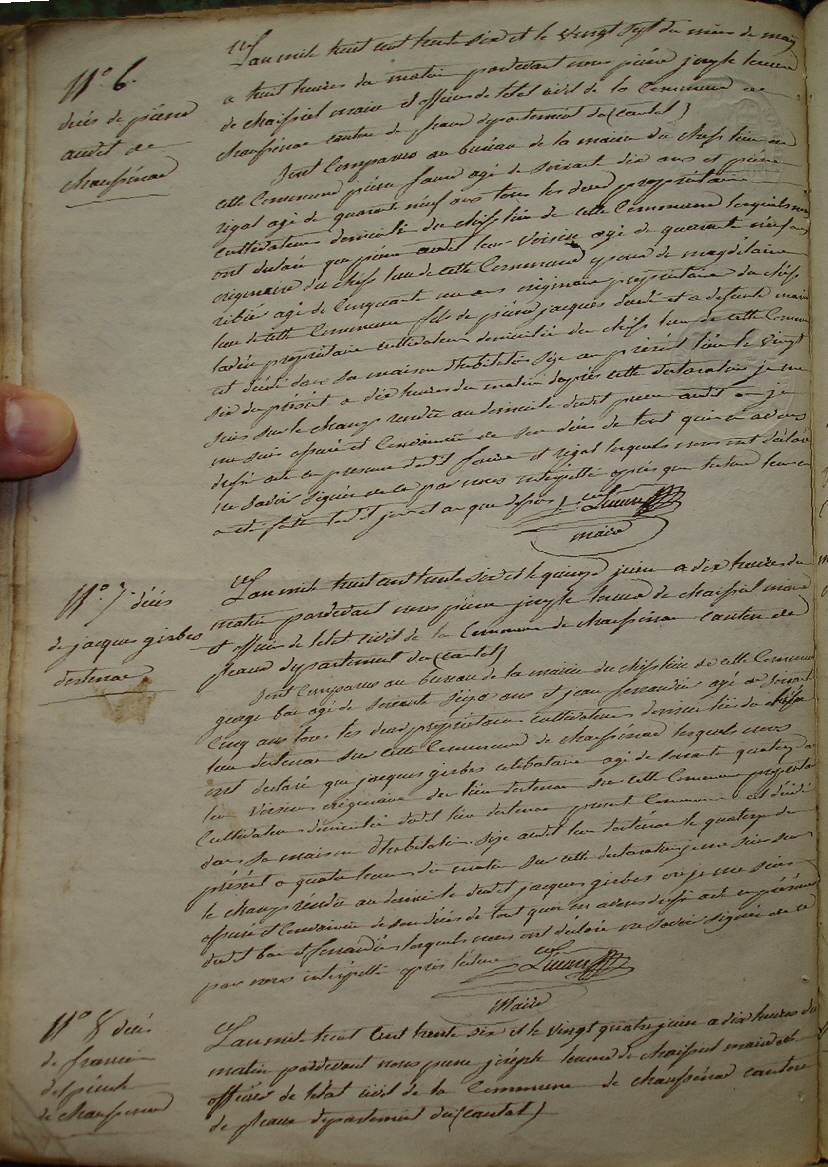 N° 6.
décès de pierre
audet de
chaussenac
L'an mil huit cent trente six et le vingt sept du mois de may
a huit heures du matin pardevant nous pierre joseph
de chaissiel maire et officier de letat civil de la Commune de
chaussenac canton de pleaux département du (cantal)
Sont Comparus au bureau de la mairie du cheflieu de
cette Commune pierre faure agé de soixante dix ans et pierre
rigal agé de quarante neuf ans tous les deux propriétaires
cultivateurs domiciliés du cheflieu de cette Commune lesquels nous
ont déclaré que pierre audet leur voisin agé de quarante neuf ans
originaire du chef lieu de cette Commune époux de magdelaine
ribier agé de Cinquante un ans originaire propriétaire du chef
lieu de cette Commune fils de pierre jacques audet et a defunte marie
propriétaire cultivateur domicilié du cheflieu de cette Commune
est décédé dans sa maison d'habitation size au présent lieu le vingt
six du présent a dix heures du matin daprès cette declaration je me
suis sur le champ rendu au domicile dudit pierre audet ou je
me suis assuré et Convaincu de son décès de tout quoi en avons
dressé acte en presence dudit faure et rigal lesquels nous ont déclaré
ne savoir signer de ce par nous interpellé après que lecture leur en
a été faite ledit jour et an que dessus
maire
N° 7. décès
de jacques girbes
destenac
L'an mil huit cent trente six et le quinze juin a dix heures du
matin pardevant nous pierre joseph de chaissiel maire
et officier de letat civil de la Commune de chaussenac canton de
pleaux département du (cantal)
Sont Comparus au bureau de la mairie du cheflieu de cette Commune
george bac agé de soixante seize ans et jean agé de soixante
Cinq ans tous les deux propriétaires cultivateurs domiciliés du
lieu destenac sur cette Commune de chaussenac lesquels nous
ont déclaré que jacques girbes celibataire agé de soixante quatorze
leur voisin originaire du lieu destenac sur cette Commune propriétaire
Cultivateur domicilié dudit lieu destenac présent Commune est décédé
dans sa maison d'habitation size audit lieu destenac le quatorze du
présent a quatre heures du matin sur cette déclaration je me suis sur
le champ rendu au domicile dudit jacques girbes ou je me suis
assuré et Convaincu de son décès de tout quoi en avons dressé acte en présence
dudit bac et lesquels nous ont déclaré ne savoir signer de ce
par nous interpellé après lecture
Maire
N° 8 décès
de
de chaussenac
L'an mil huit Cent trente six et le vingt quatre juin a dix heures du
matin pardevant nous pierre joseph de chaissiel maire et
officier de letat civil de la Commune de chaussenac canton
de pleaux departement du (cantal)